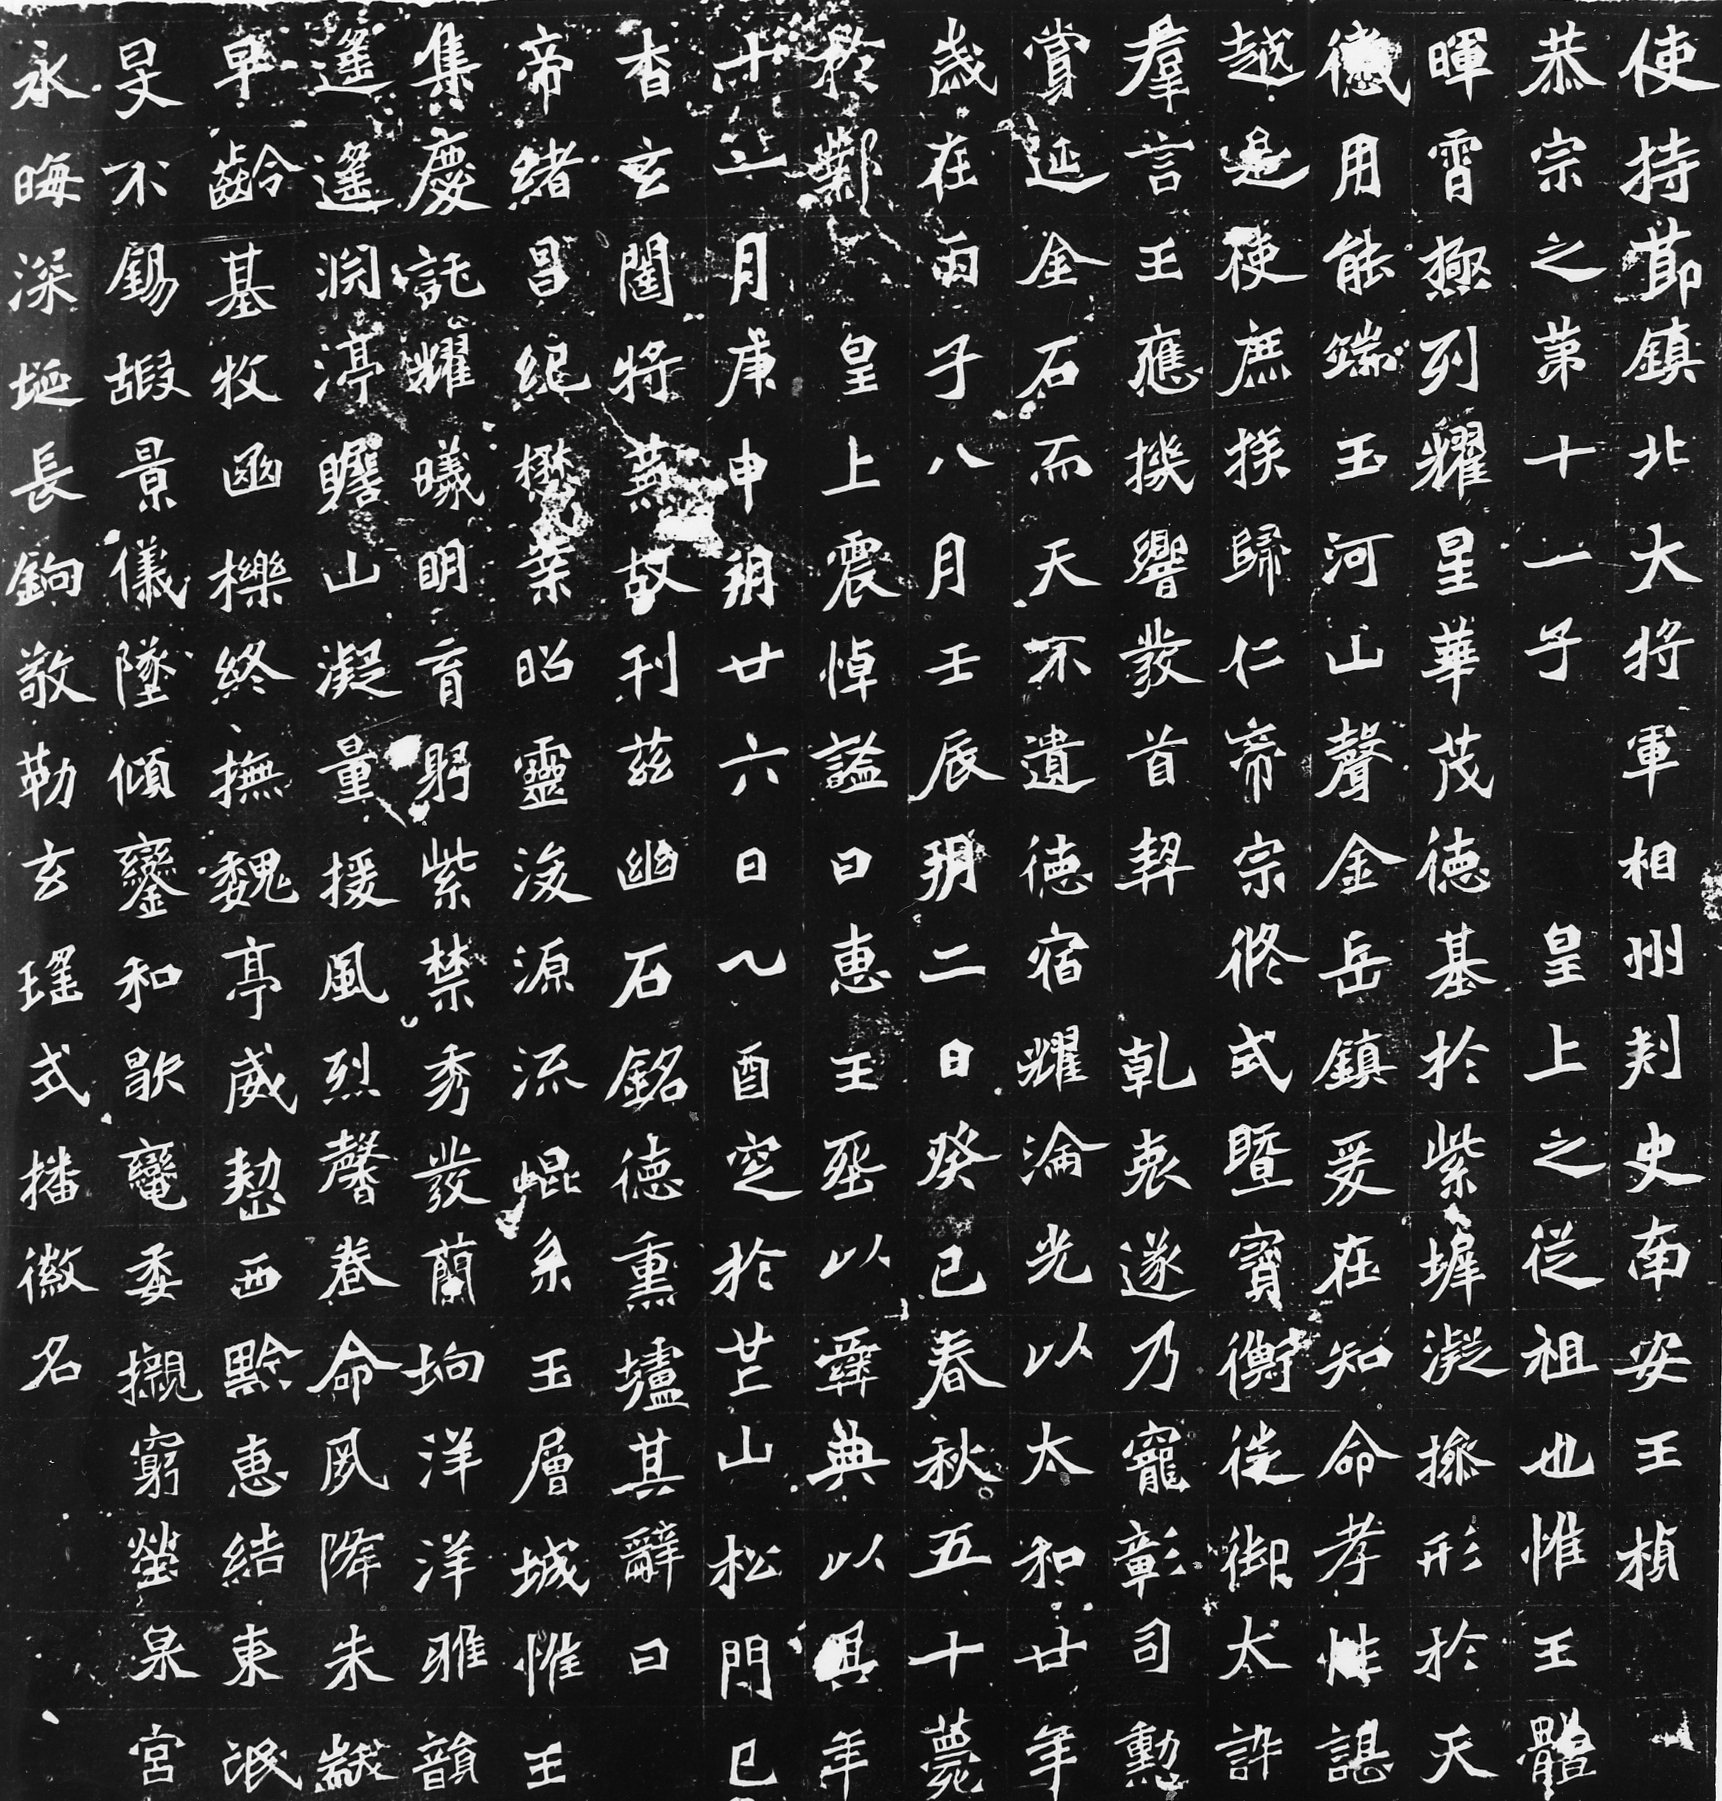 使持節鎮北大將軍相州刺史南安王楨
恭宗之第十一子皇上之從祖也惟王體
暉霄極列耀星華茂德基於紫墀凝操形於天
用能端玉河山聲金岳鎮爰在知命孝性諶
越是使庶族歸仁帝宗攸式暨寶衡徙御太訐
羣言王應機響發首契乾衷遂乃寵彰司勳
賞延金石而天不遺德宿耀淪光以太和廿年
歲在丙子八月壬辰朔二日癸巳春秋五十薨
於鄴皇上震悼謚曰惠王葬以彝典以其年
十一月庚申朔廿六日乙酉窆於芒山松門已
杳玄闥將蕪故刊茲幽石銘德熏壚其辭曰
帝緒昌紀懋業昭靈浚源流崐系玉層城惟王
集慶託耀曦明育躬紫禁秀發蘭坰洋洋雅韻
遙遙淵渟瞻山凝量援風烈馨卷命夙降朱黻
早齡基牧函櫟終撫魏亭威懃西黔惠結東氓
旻不錫嘏景儀墜傾鑾和歇鞃委櫬窮塋泉宮
永晦深埏長鋾敬勒玄瑤式播徽名